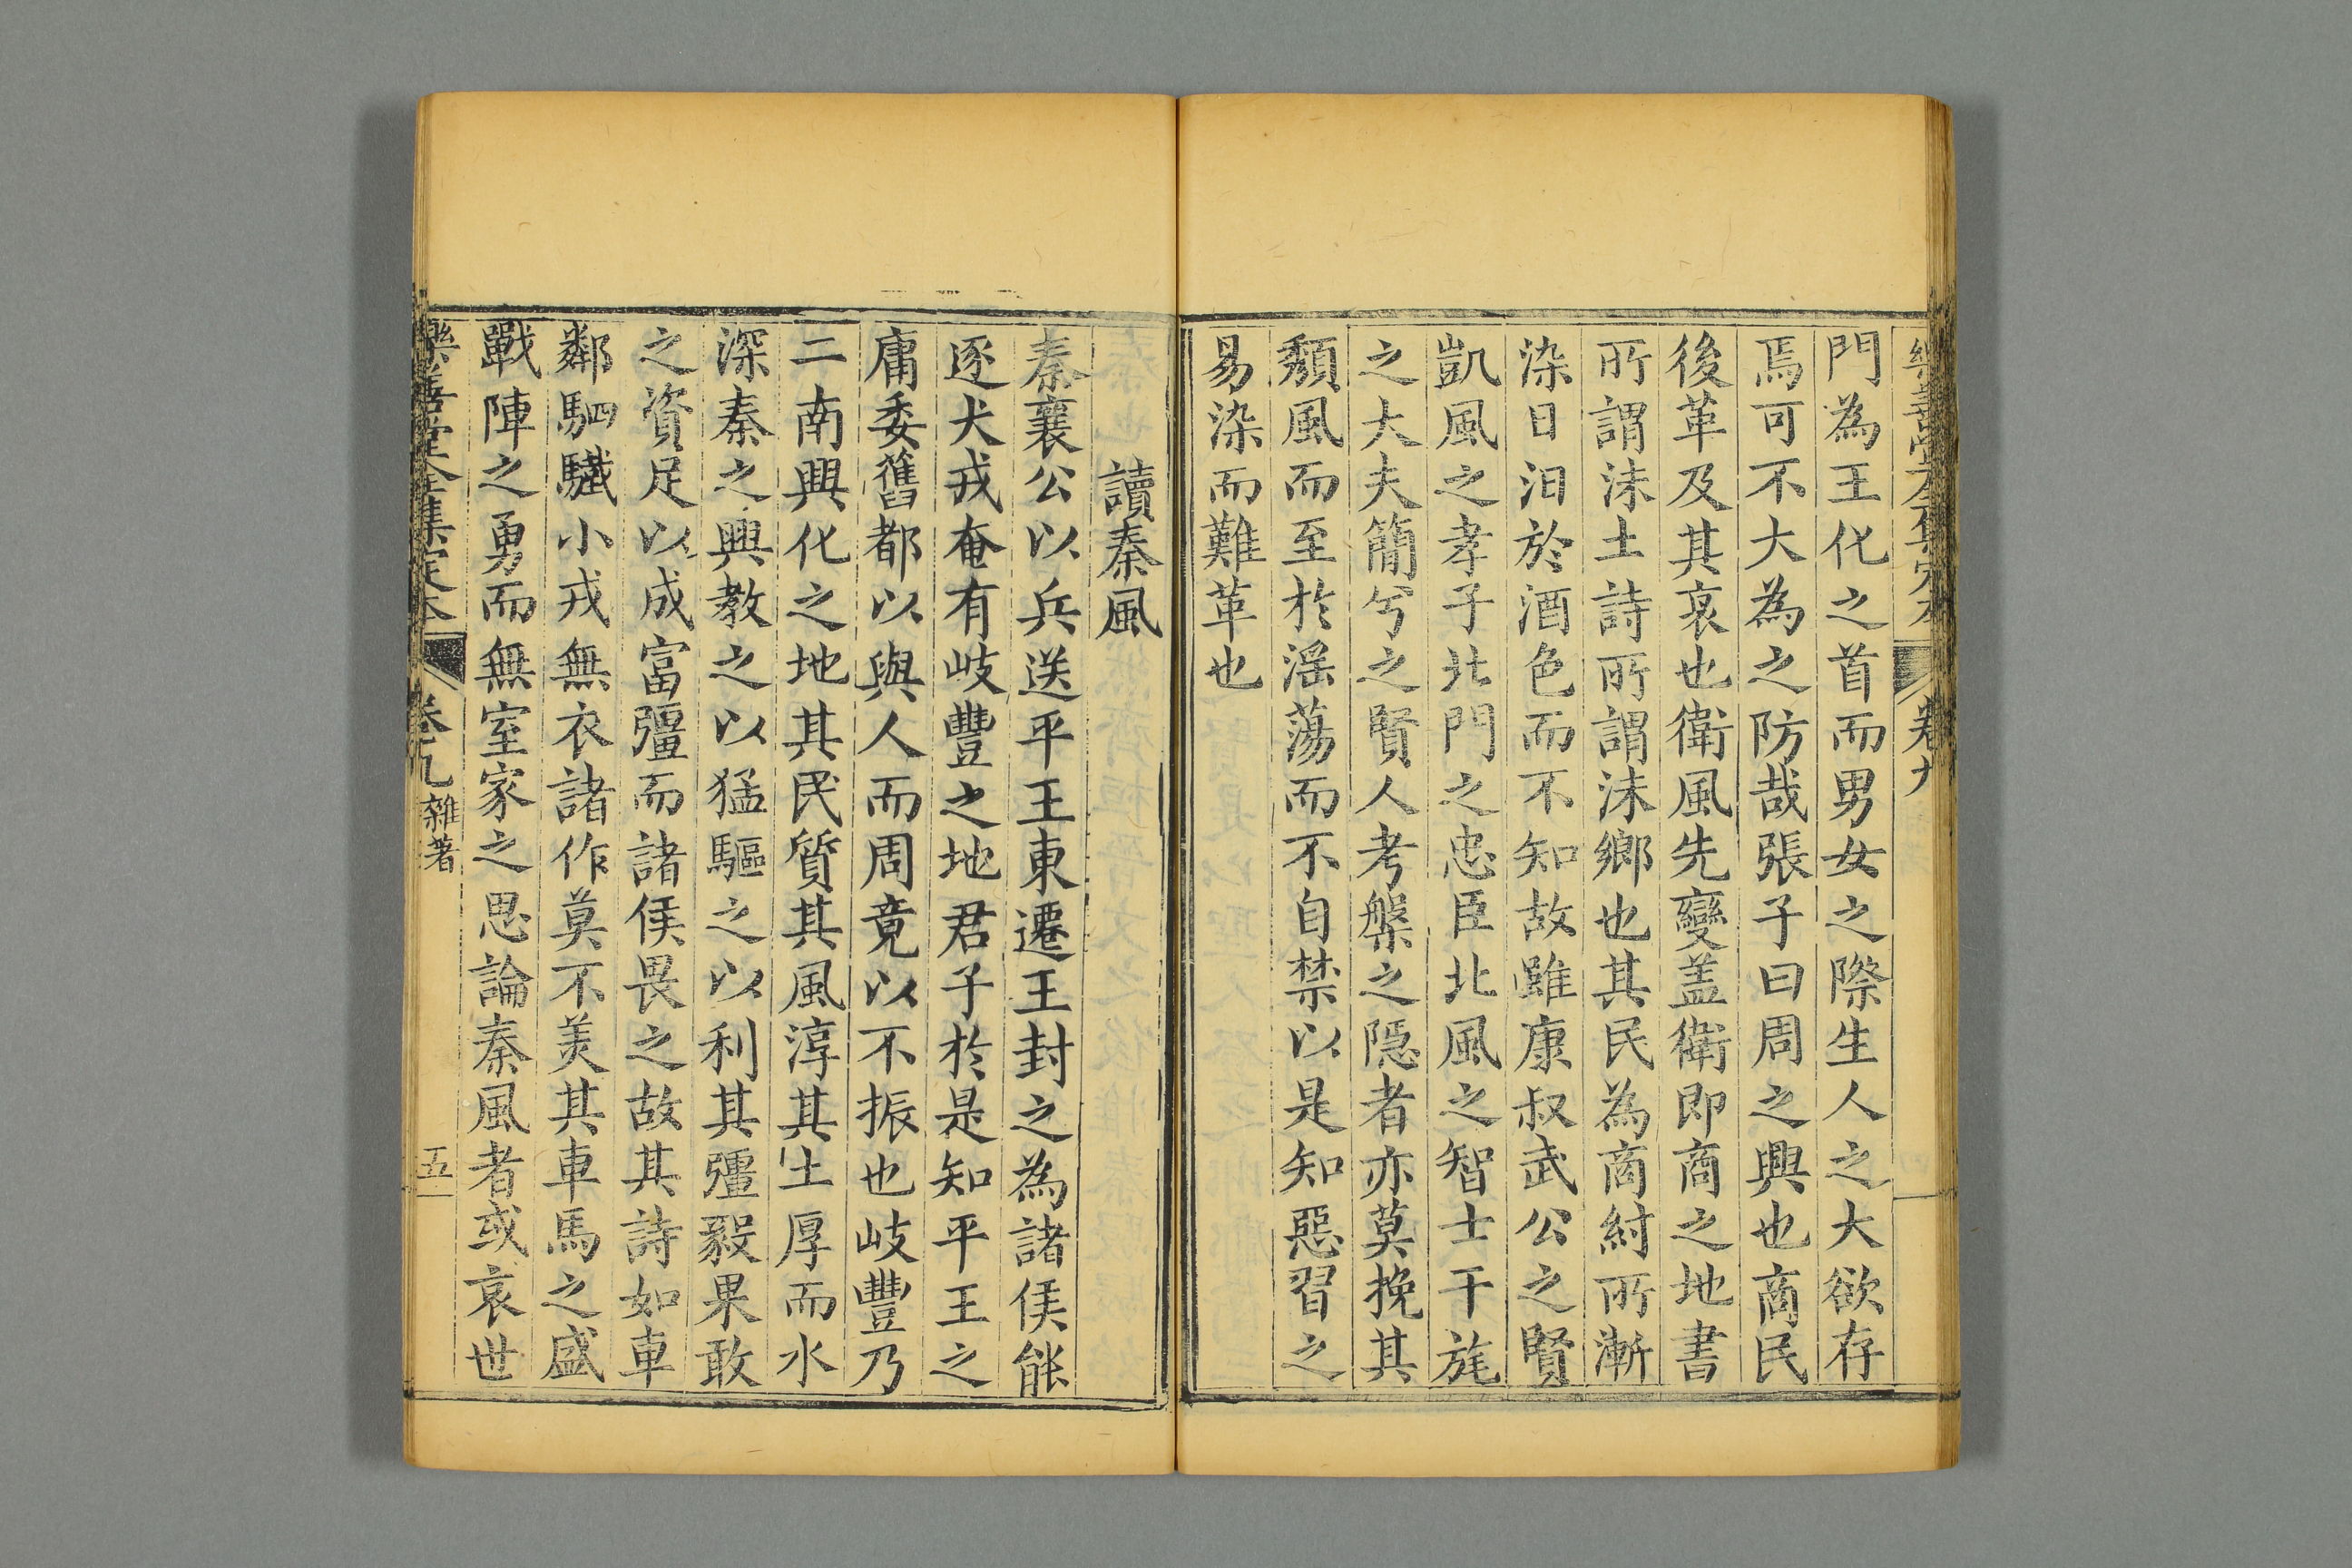 樂善堂全集定本 卷九
門為王化之首而男女之際生人之大欲存
焉可不大為之防哉張子曰周之興也商民
後革及其衰也衛風先變盖衛即商之地書
所謂沬土詩所謂沬鄉也其民為商紂所漸
染日汩於酒色而不知故雖康叔武公之賢
凱風之孝子北門之忠臣北風之智士干旄
之大夫簡兮之賢人考槃之隱者亦莫挽其
頹風而至於滛蕩而不自禁以是知惡習之
易染而難革也
讀秦風
秦襄公以兵送平王東遷王封之為諸侯能
逐犬戎奄有岐豐之地君子於是知平王之
庸委舊都以與人而周竟以不振也岐豐乃
二南興化之地其民質其風淳其土厚而水
深秦之興教之以猛驅之以利其彊毅果敢
之資足以成富彊而諸侯畏之故其詩如車
鄰駟驖小戎無衣諸作莫不美其車馬之盛
戰陣之勇而無室家之思論秦風者或哀世
樂善堂全集定本 卷九 雜著 五